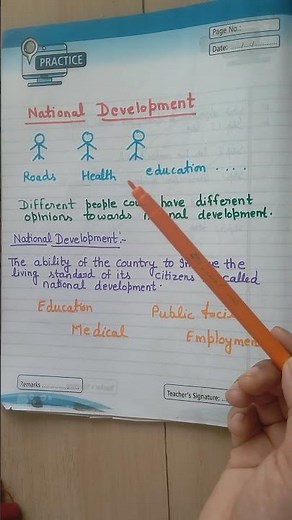 Page No.:
Date: / /
PRACTICE
National Development
Roads Health education ....
Different people have different
opinions towards development.
National Development:-
The ability of the Country to the
living standard of its citizens called
national development.
Education Public
Medical
Remarks
Teacher's Signature: